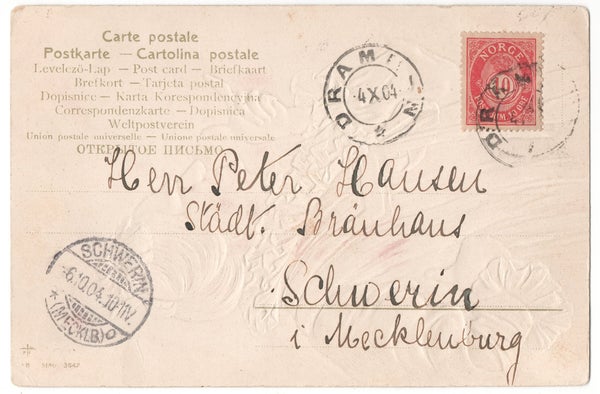 Carte postale
Postkarte — Cartolina postale
Levelező-Lap — Post card — Briefkaart
Brefkort — Tarjeta postal
Dopisnice — Karta Korespondencyjna
Correspondenzkarte — Dopisnica
Weltpostverein
Union postale universelle — Unione postale universale
ОТКРЫТОЕ ПИСЬМО
DRAMMEN
4 X 04
NORGE
10
Herr Peter Hansen
Städt. Bräuhaus
Schwerin
i Mecklenburg
SCHWERIN
6.10.04.10-11V.
* (MECKLB)